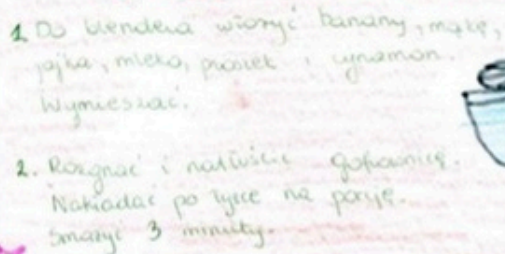 1. Do blendera włożyć banany, mąkę,
jajka, mleko, proszek i cynamon.
Wymieszać.
2. Rozgrzać i natłuścić gofrownicę.
Nakładać po łyżce na porcję.
Smażyć 3 minuty.